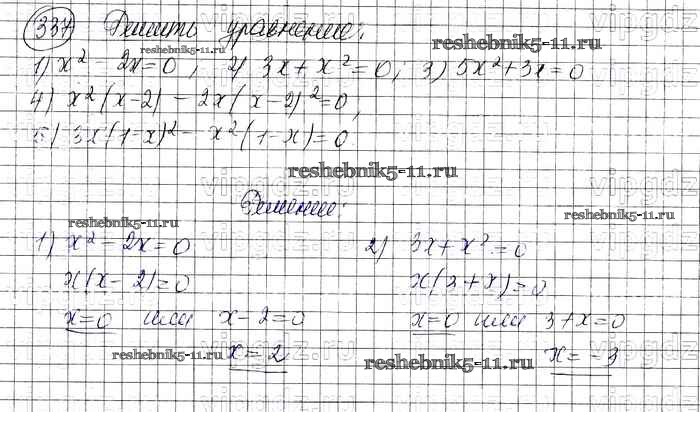 337 Решить уравнение:
reshebnik5-11.ru reshebnik5-11.ru
1) x² - 2x = 0; 2) 3x + x² = 0; 3) 5x² + 3x = 0
4) x²(x-2) - 2x(x-2)² = 0,
5) 3x(1-x)² - x²(1-x) = 0
reshebnik5-11.ru
Решение:
reshebnik5-11.ru reshebnik5-11.ru
1) x² - 2x = 0 2) 3x + x² = 0
x(x-2) = 0 x(3+x) = 0
x=0 или x-2=0 x=0 или 3+x=0
x=2 x=-3
reshebnik5-11.ru reshebnik5-11.ru